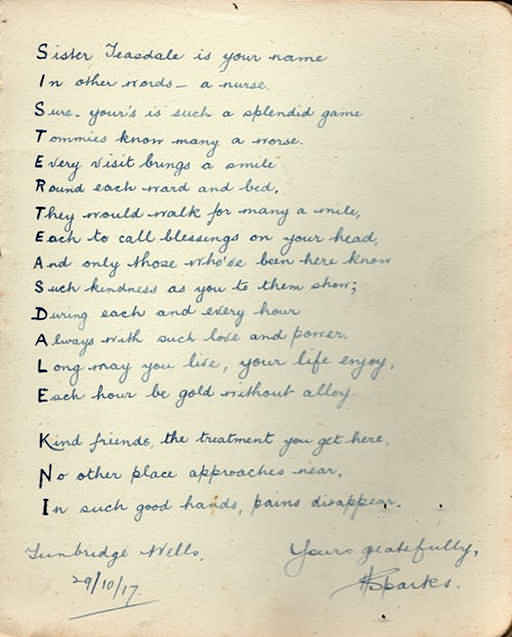 Sister Teasdale is your name
In other words – a nurse.
Sure, your's is such a splendid game
Tommies know many a worse.
Every visit brings a smile
Round each ward and bed,
They would walk for many a mile,
Each to call blessings on your head,
And only those who've been here know
Such kindness as you to them show;
During each and every hour
Always with such love and power.
Long may you live, your life enjoy,
Each hour be gold without alloy.
Kind friends, the treatment you get here,
No other place approaches near,
In such good hands, pains disappear.
Tunbridge Wells.
Yours gratefully,
29/10/17.
Sparks.